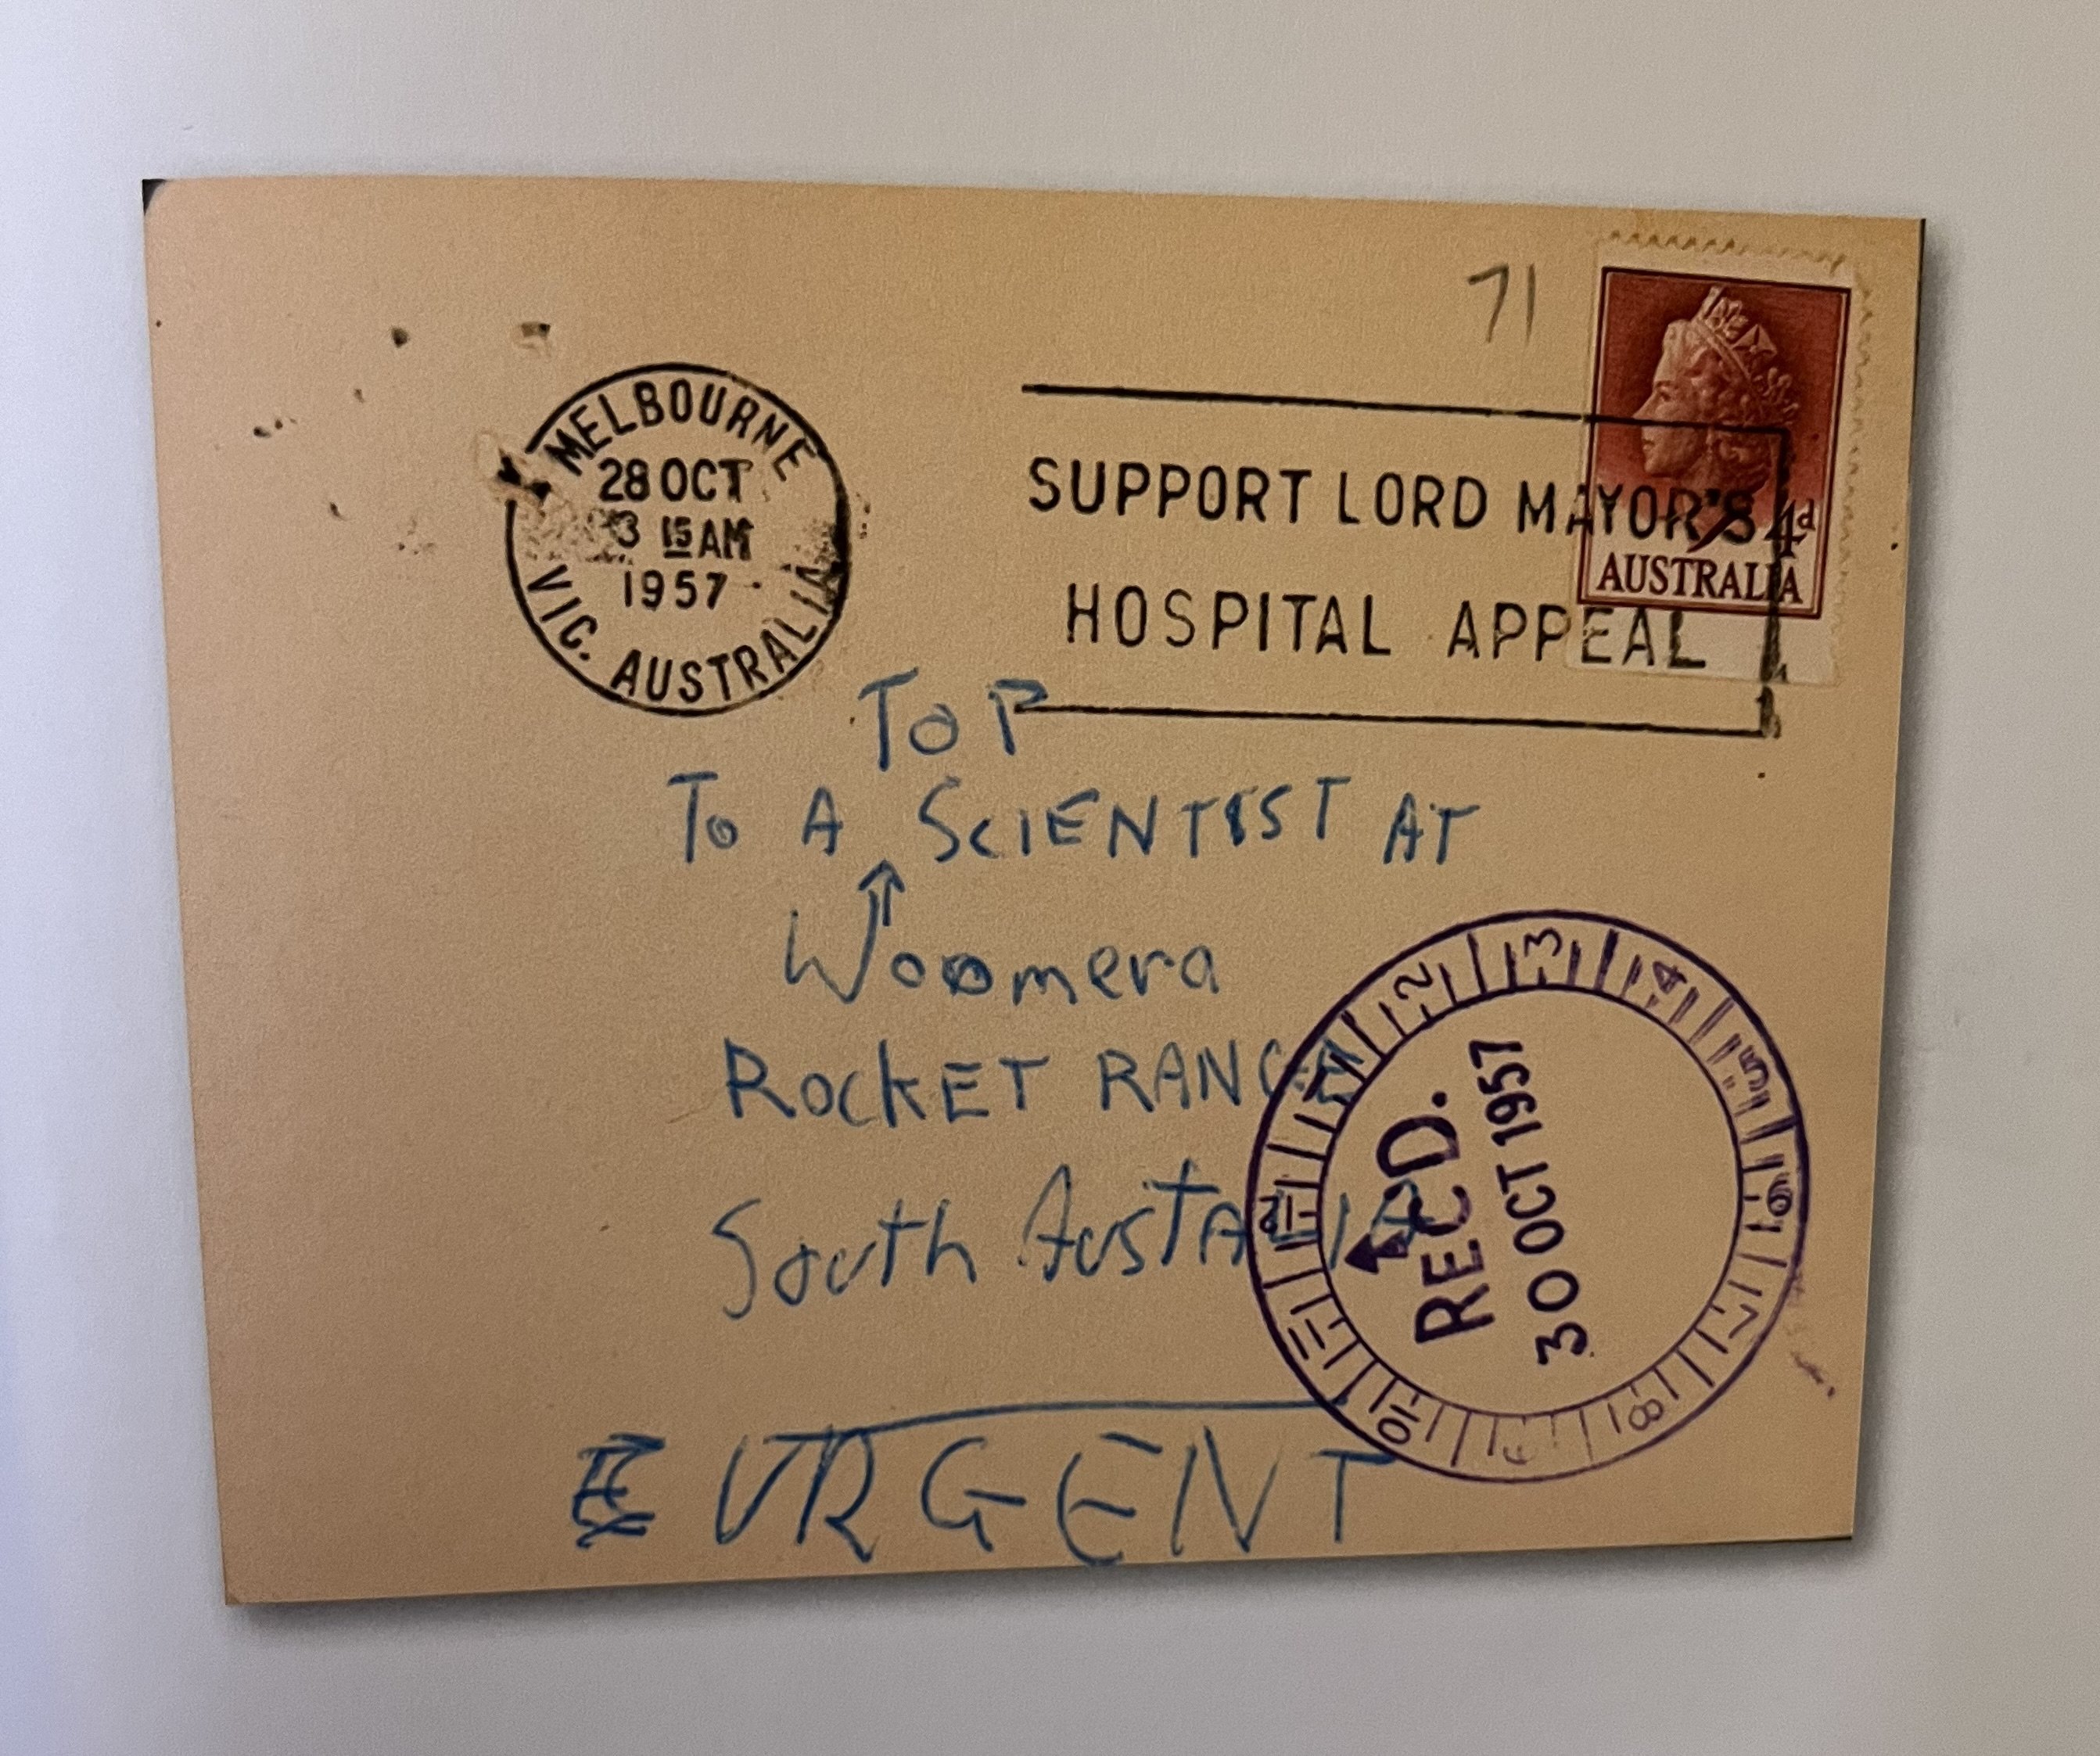 71
MELBOURNE
28 OCT
3 15 AM
1957
VIC. AUSTRALIA
SUPPORT LORD MAYOR'S
HOSPITAL APPEAL
4d
AUSTRALIA
TOP
To A SCIENTIST AT
Woomera
ROCKET RANGE
South AustALIA
URGENT
REC'D.
30 OCT 1957
1 2 3 4 5 6 7 8 9 10 11 12